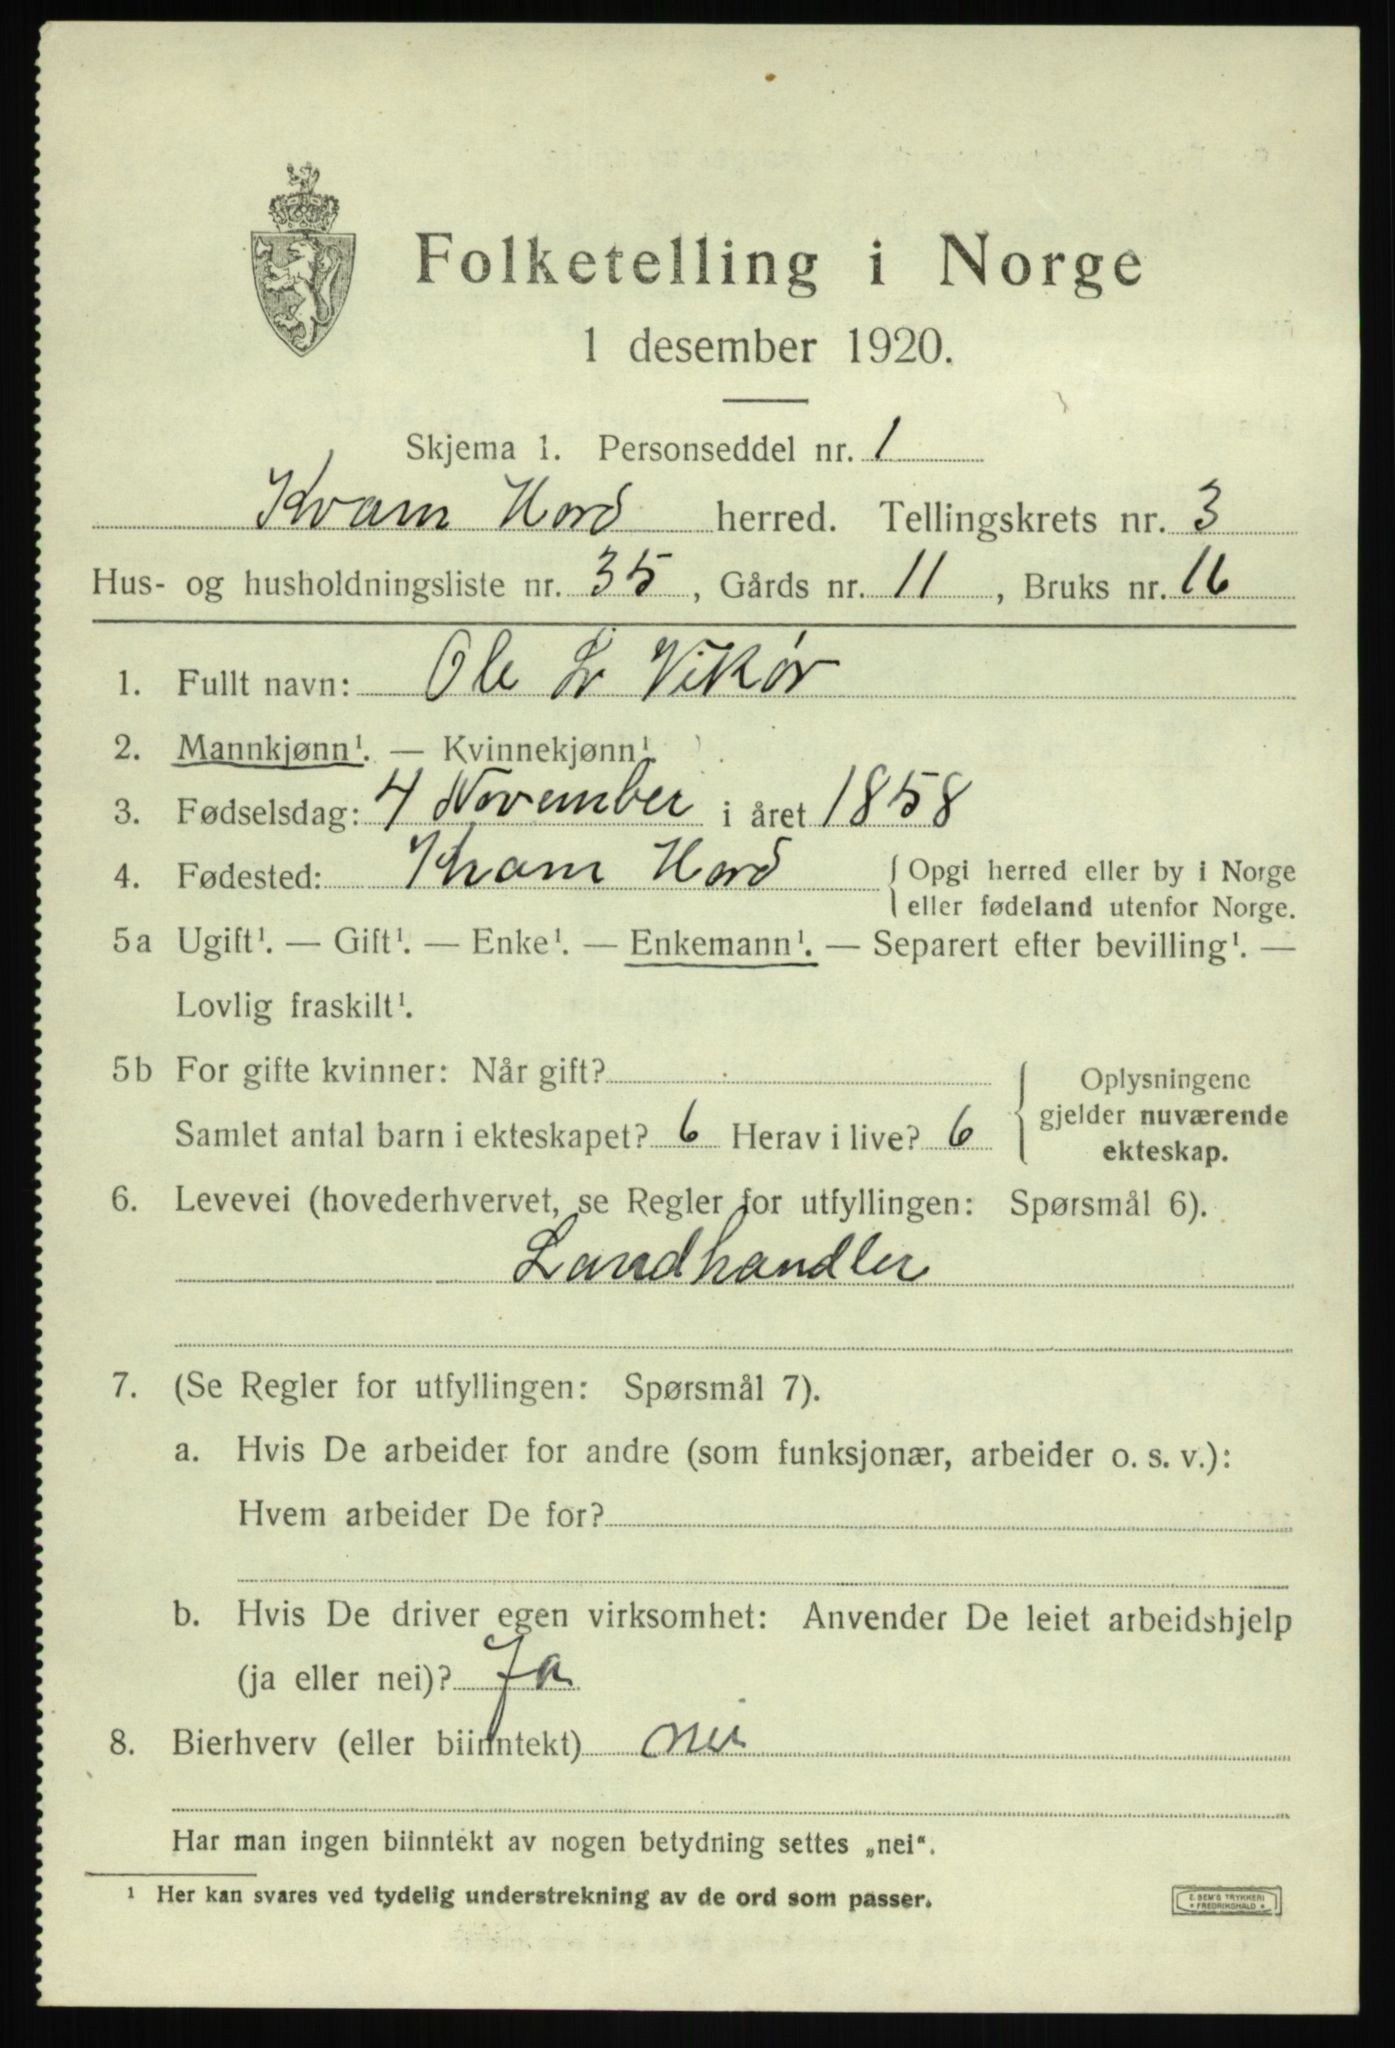 Folketelling i Norge
1 desember 1920.
Skjema 1. Personseddel nr. 1
Kvam Hord herred. Tellingskrets nr. 3
Hus- og husholdningsliste nr. 35, Gårds nr. 11, Bruks nr. 16
1. Fullt navn: Ole L Vikør
2. Mannkjønn¹. — Kvinnekjønn¹.
3. Fødselsdag: 4 November i året 1858
4. Fødested: Kvam Hord { Opgi herred eller by i Norge
eller fødeland utenfor Norge.
5a Ugift¹. — Gift¹. — Enke¹. — Enkemann¹. — Separert efter bevilling¹. —
Lovlig fraskilt¹.
5b For gifte kvinner: Når gift?
Samlet antal barn i ekteskapet? 6 Herav i live? 6
Oplysningene
gjelder nuværende
ekteskap.
6. Levevei (hovederhvervet, se Regler for utfyllingen: Spørsmål 6).
Landhandler
7. (Se Regler for utfyllingen: Spørsmål 7).
a. Hvis De arbeider for andre (som funksjonær, arbeider o. s. v.):
Hvem arbeider De for?
b. Hvis De driver egen virksomhet: Anvender De leiet arbeidshjelp
(ja eller nei)? Ja
8. Bierhverv (eller biinntekt) nei
Har man ingen biinntekt av nogen betydning settes „nei“.
¹ Her kan svares ved tydelig understrekning av de ord som passer.
E. SEM'S TRYKKERI
* FREDRIKSHALD *